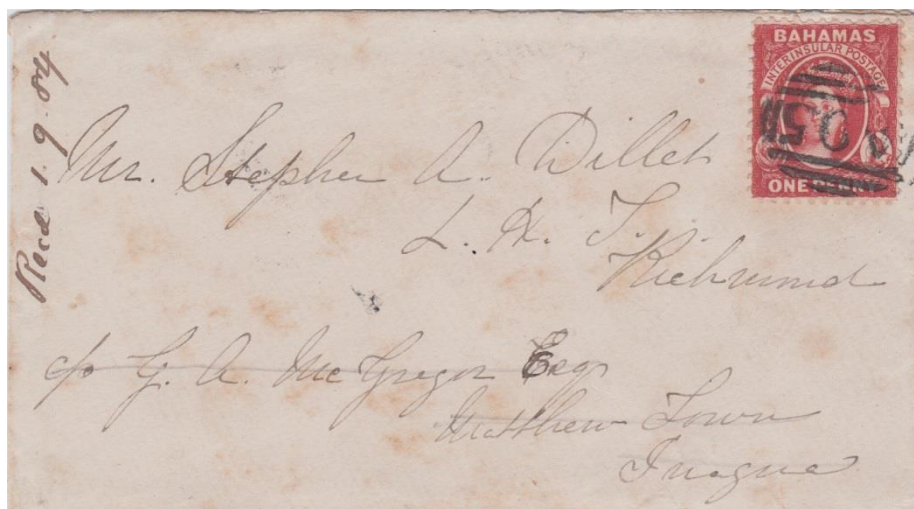 BAHAMAS
INTERINSULAR POSTAGE
ONE PENNY
Recd 1.9.84
Mr. Stephen A. Dillet
L. H. T.
Richmond
c/o G. A. McGregor Esqr
Matthew Town
Inagua